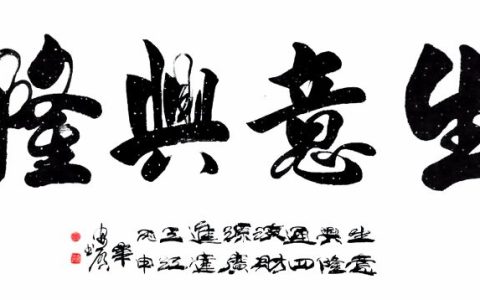 生意興隆
生意
興隆
通四
海財
源廣
進達
三江
丙申